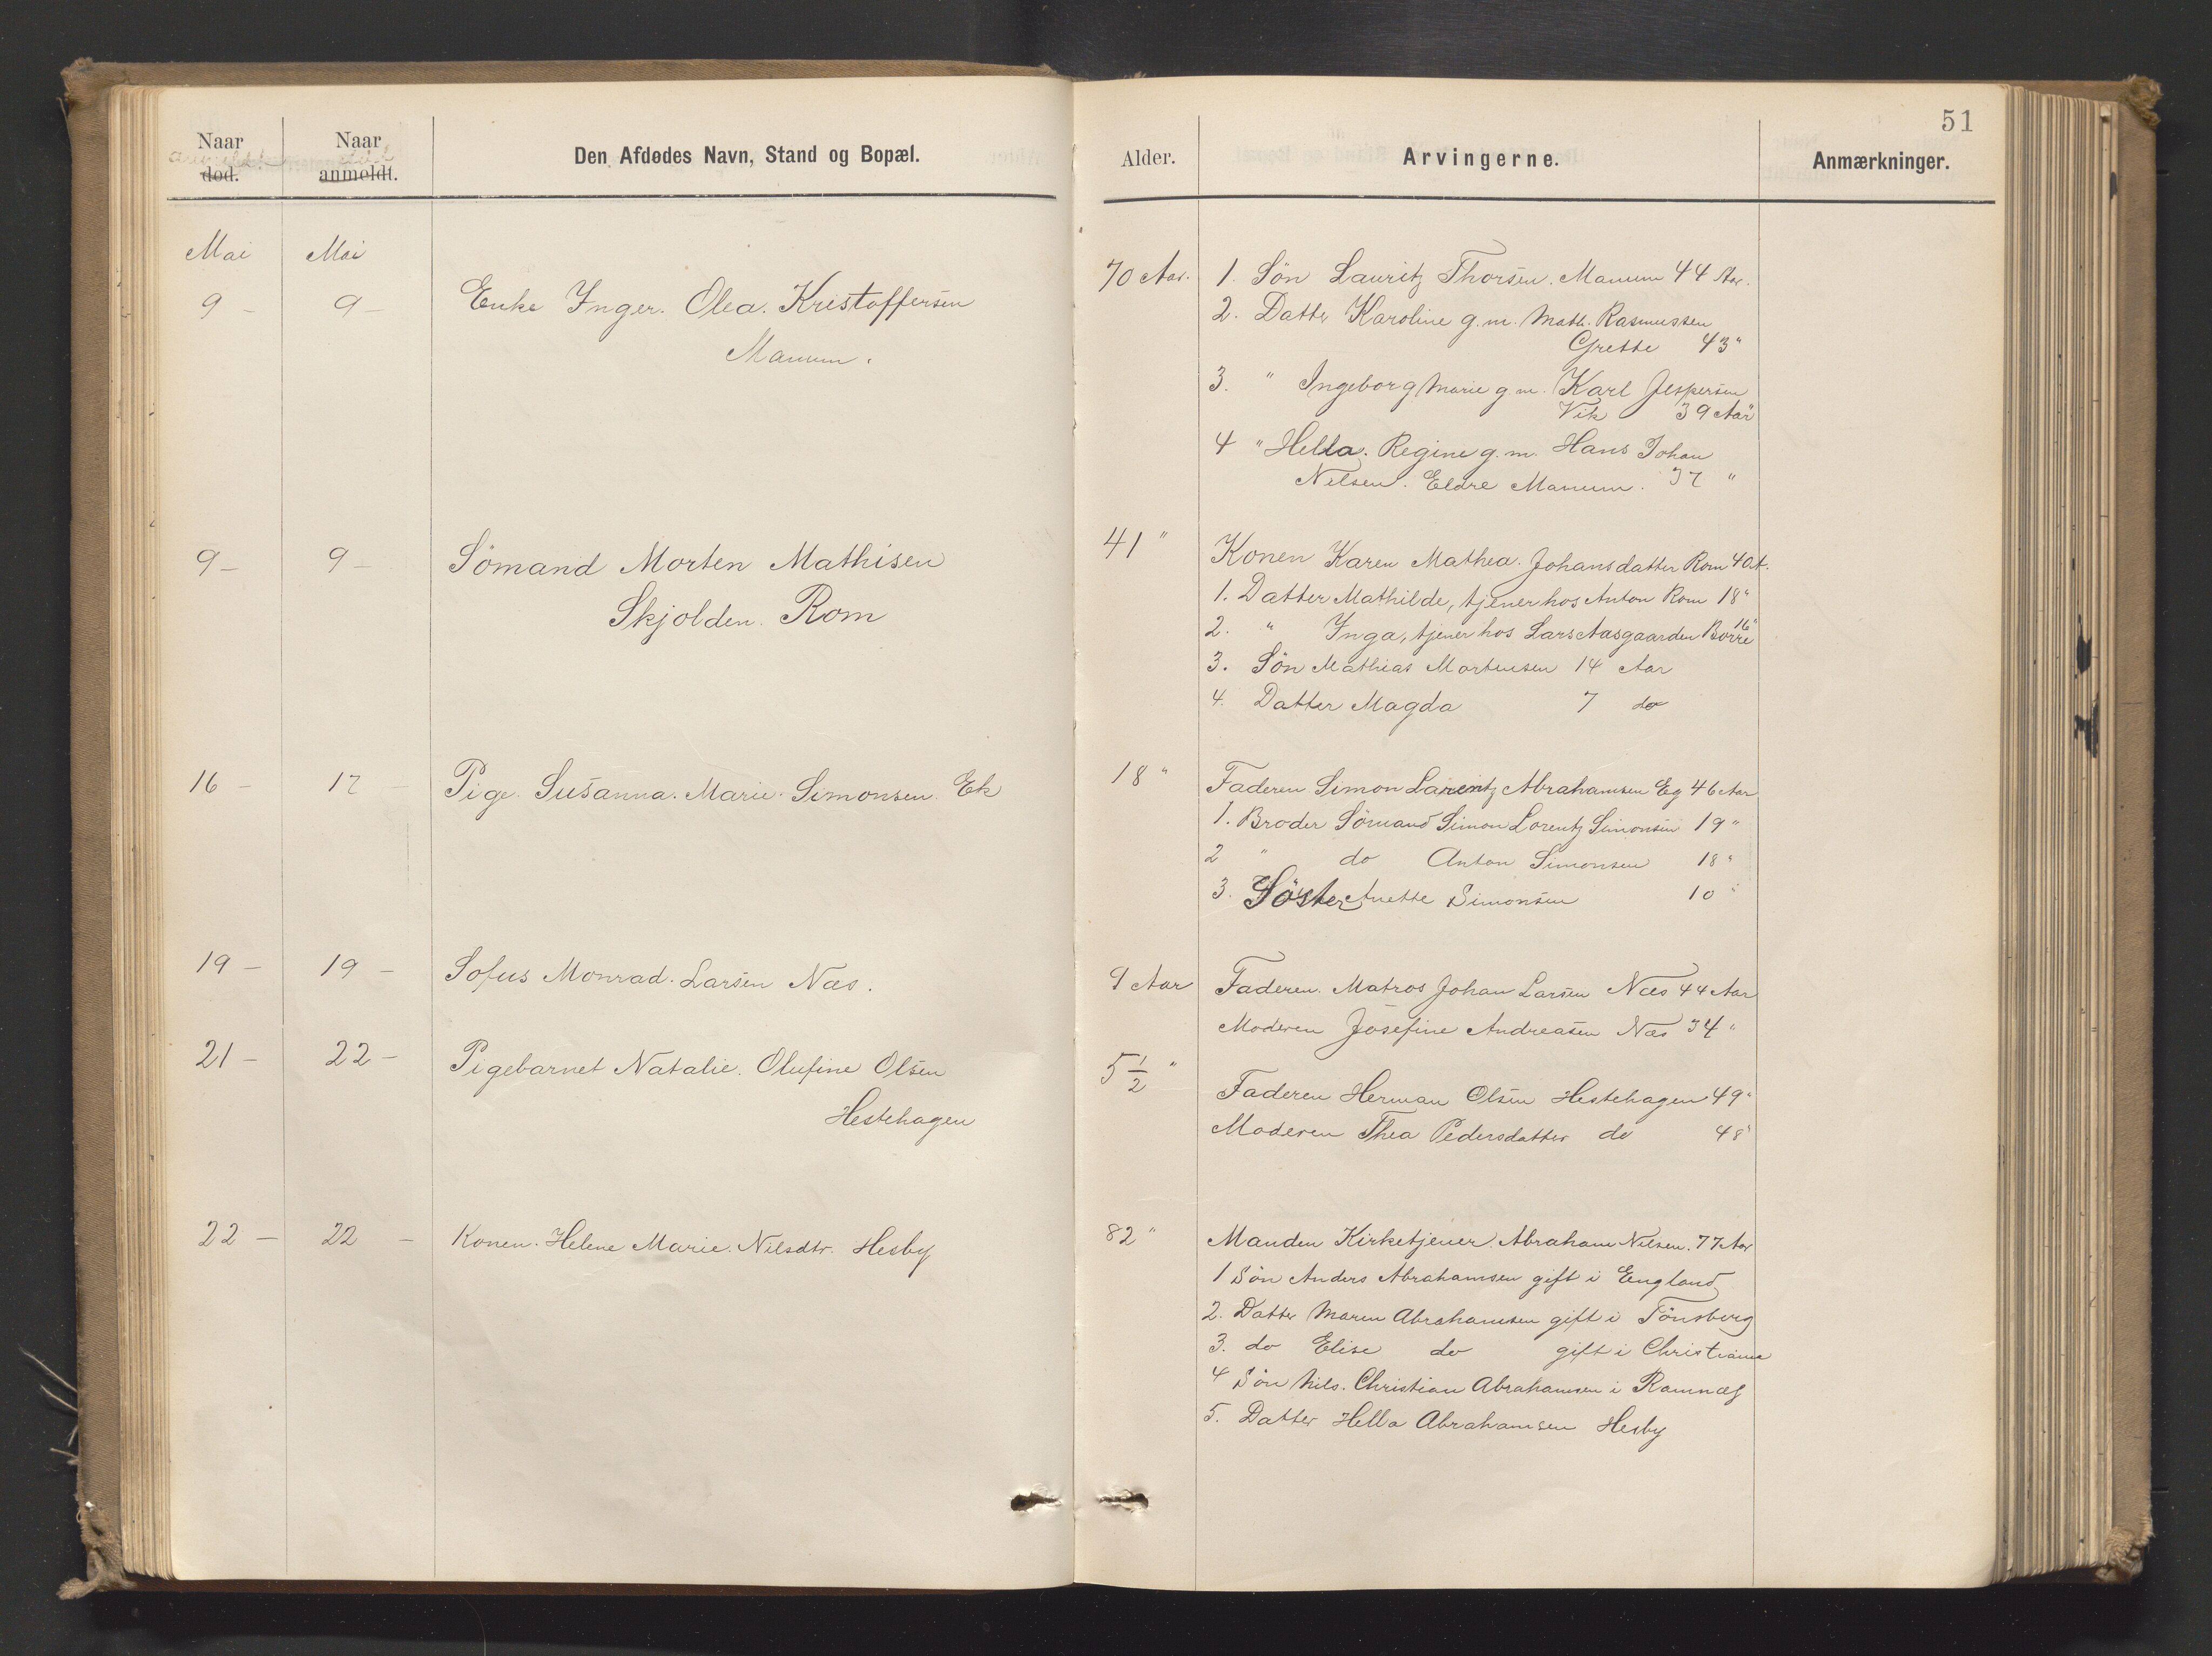 51
Naar død. Naar anmeldt. Den Afdødes Navn, Stand og Bopæl. Alder. Arvingerne. Anmærkninger.
anmeldt død
Mai Mai
9 – 9 – Enke Inger. Olea. Kristoffersen 70 Aar.
Manum.
1. Søn Lauritz Thorsen. Manum 44 Aar.
2. Datter Karoline g. m. Math. Rasmussen
Grette 43 "
3. " Ingeborg Marie g m. Karl Jespersen
Vik 39 Aar
4 " Hella. Regine g. m. Hans Johan
Nilsen. Eldre Manum. 37 "
9 – 9 – Sömand Morten Mathisen 41 "
Skjolden. Rom
Konen Karen Mathea. Johansdatter Rom 40 A.
1. Datter Mathilde, tjener hos Anton Rom 18 "
2. " Inga, tjener hos Lars Aasgaarden Borre 16 "
3. Søn Mathias Mortensen 14 Aar
4. Datter Magda 7 do
16 – 17 – Pige. Susanna. Marie. Simonsen. Ek 18 "
Faderen Simon Larentz Abrahamsen Eg 46 Aar
1. Broder Sömand Simon Lorentz Simonsen 19 "
2 " do Anton Simonsen 18 "
3. Söster Anette Simonsen 10 "
19 – 19 – Sofus Monrad. Larsen Næs. 9 Aar
Faderen. Matros Johan Larsen Næs 44 Aar
Moderen Josefine Andreasen Næs 34 "
21 – 22 – Pigebarnet Natalie. Olufine Olsen 5 1/2 "
Hestehagen
Faderen Herman Olsen Hestehagen 49 "
Moderen Thea Pedersdatter do 48 "
22 – 22 – Konen. Helene Marie. Nilsdtr. Hesby 82 "
Manden Kirketjener. Abraham Nilsen. 77 Aar
1 Søn Anders Abrahamsen gift i England
2. Datter Maren Abrahamsen gift i Tönsberg
3. do Elise do gift i Christiania
4 Søn Nils. Christian Abrahamsen i Ramnæs
5. Datter Hella Abrahamsen Hesby